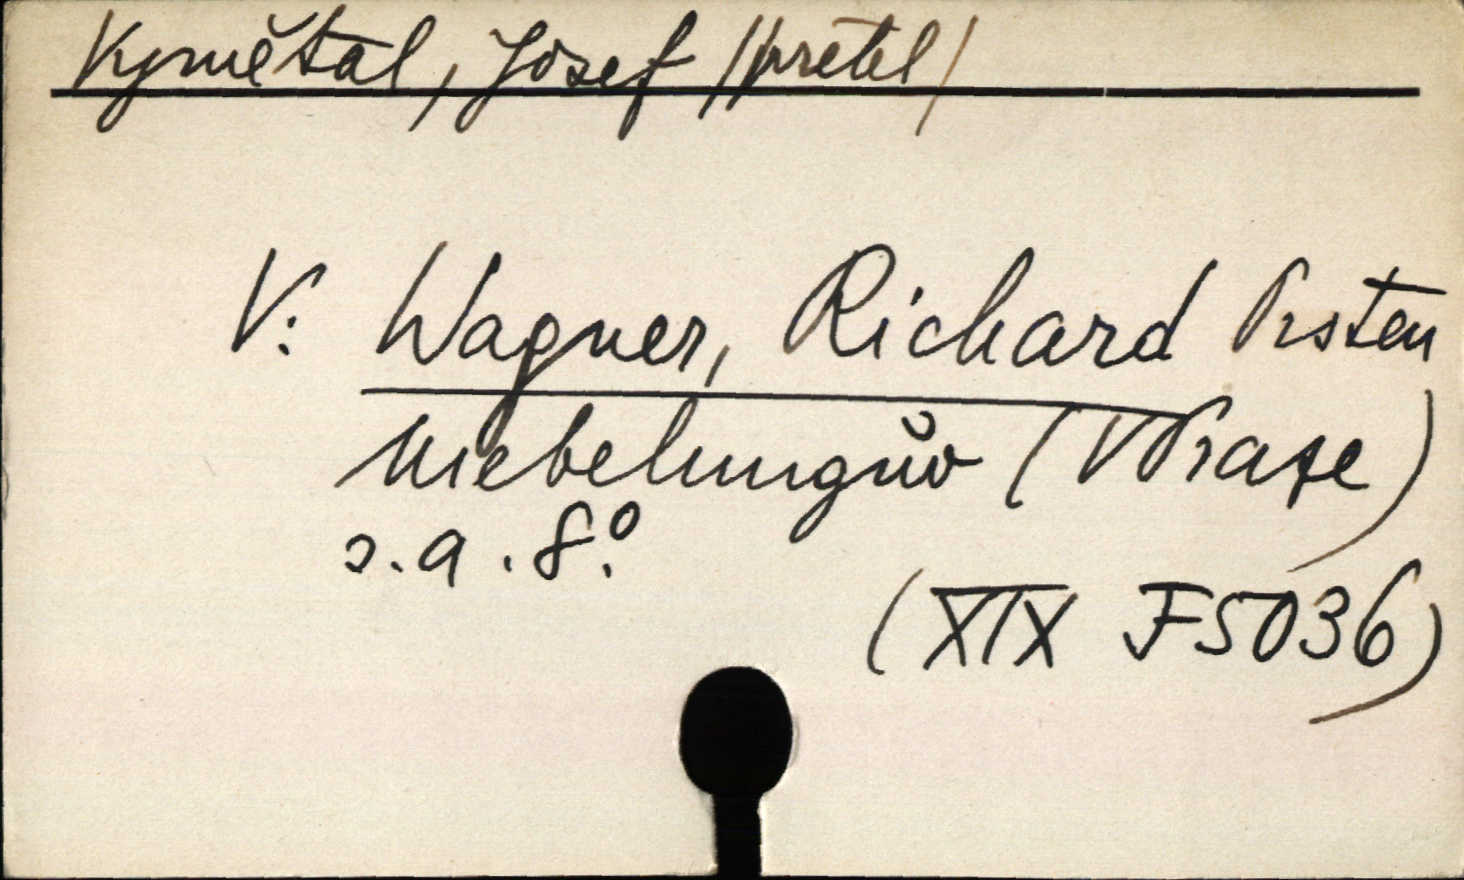 Vymětal, Josef /přetel/
V: Wagner, Richard Prsten
Niebelungův (V Praze)
s.a. 8°.
(XIX F5036)